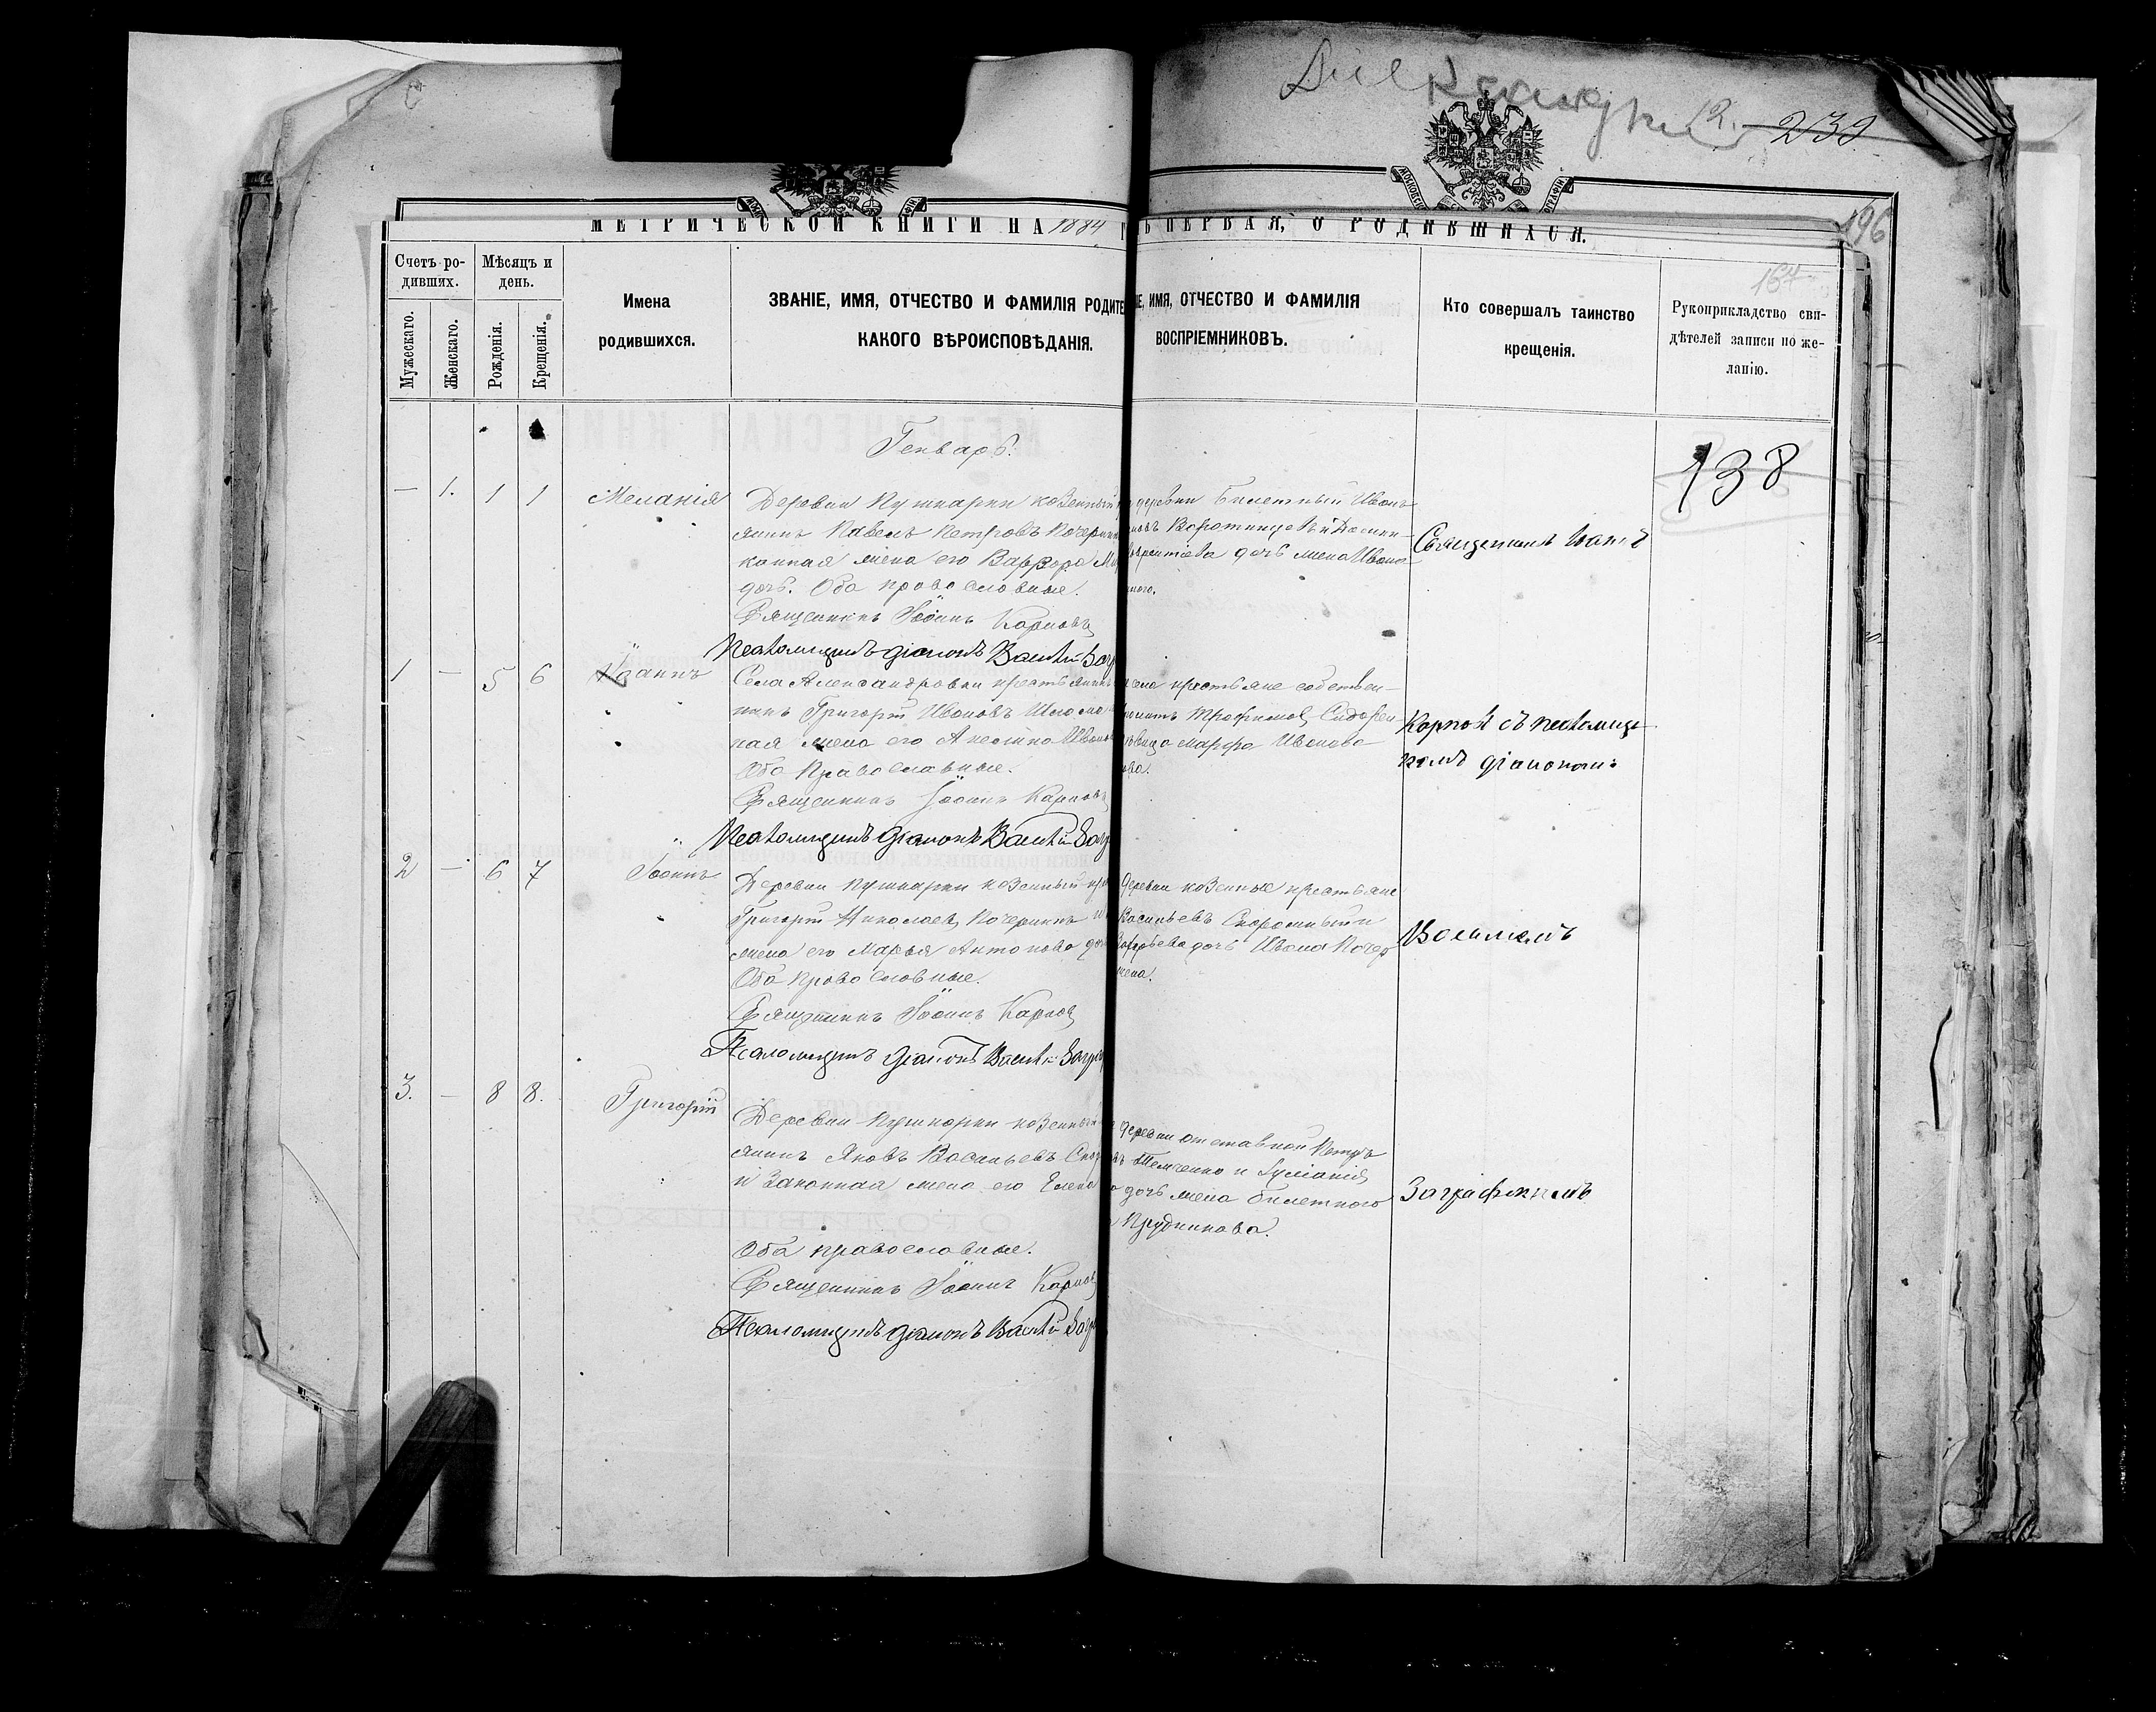 232
196
МЕТРИЧЕСКОЙ КНИГИ НА 1884 Г
Ь ПЕРВАЯ, О РОДИВШИХСЯ.
Счетъ ро-
дивших.
Мѣсяцъ и
день.
Мужескаго.
Женскаго.
Рожденія.
Крещенія.
Имена
родившихся.
ЗВАНІЕ, ИМЯ, ОТЧЕСТВО И ФАМИЛІЯ РОДИТЕ
КАКОГО ВѢРОИСПОВѢДАНІЯ.
Е, ИМЯ, ОТЧЕСТВО И ФАМИЛІЯ
ВОСПРІЕМНИКОВЪ.
Кто совершалъ таинство
крещенія.
164
Рукоприкладство сви-
дѣтелей записи по же-
ланію.
138
Генварь.
— 1. 1 1 Меланія
Деревни Пушкарни козенный
янинъ Павелъ Петровъ Почерни
конная жена его Варвара Ми
дочь. Оба православные.
Священникъ Іоаннъ Карповъ
Псаломщикъ діаконъ Василій Заг
деревни билетный Иванъ
Воротинцевъ и Домни
рентіева дочь жена Ивана
ного.
Священникъ Іоаннъ
1 — 5 6 Іоаннъ
Села Александровки крестьянинъ
никъ Григорій Ивановъ
ная жена его Аксинья Иванов
Оба православные.
Священникъ Іоаннъ Карповъ
Псаломщикъ діаконъ Василій Заг
села крестьяне собствен-
Трофимовъ Сидорен-
вица Марфа Иванова
ова.
Карповъ съ псаломщи-
комъ діакономъ
2 — 6 7 Іоаннъ
Деревни Пушкарни козенный кре
Григорій Николаевъ Почернинъ и
жена его Марья Антонова доч
Оба православные.
Священникъ Іоаннъ Карповъ
Псаломщикъ діаконъ Василій Загра
деревни козенные крестьяне
Васильевъ Скоросный и
дочь Ивана Почер
жена.
Василіемъ
3. — 8 8. Григорій
Деревни Пушкарни козенный
янинъ Яковъ Васильевъ Скор
и законная жена его Елена
Оба православные.
Священникъ Іоаннъ Карповъ
Псаломщикъ діаконъ Василій Загр
деревни отставной Петръ
Темченко и Іуліанія
дочь жена билетного
Прудникова.
Заграфскимъ